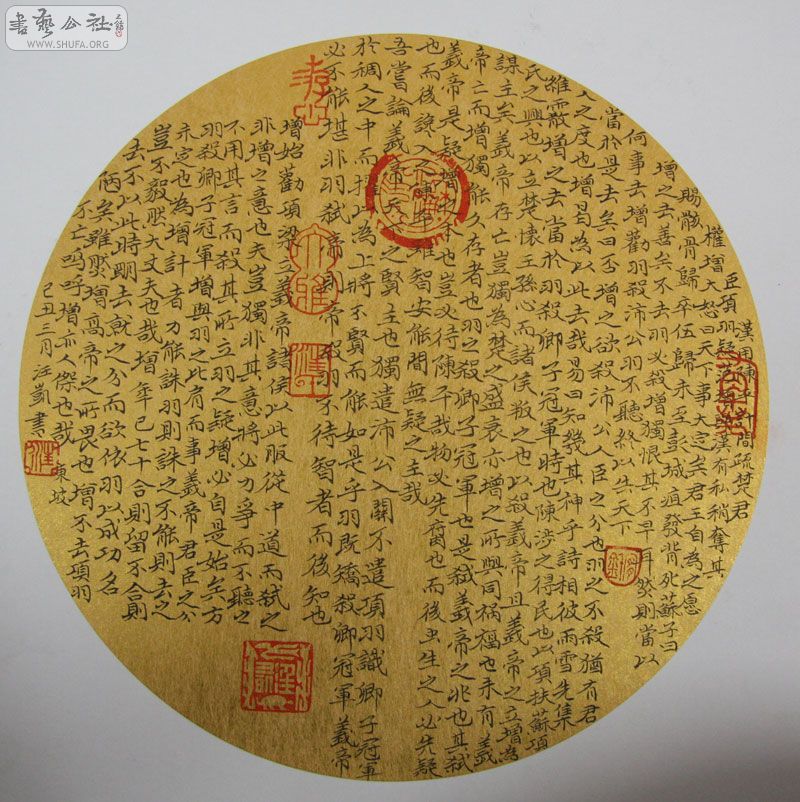 書藝公社
WWW.SHUFA.ORG
漢用陳平計間疏楚君
臣項羽疑范增與漢有私稍奪其
權增大怒曰天下事大定矣君王自為之願
賜骸骨歸卒伍歸未至彭城疽發背死蘇子曰
增之去善矣不去羽必殺增獨恨其不早耳然則當以
何事去增勸羽殺沛公羽不聽終以失天下
當於是去矣曰否增之欲殺沛公人臣之分也羽之不殺猶有君
人之度也增曷為以此去哉易曰知幾其神乎詩相彼雨雪先集
維霰增之去當於羽殺卿子冠軍時也陳涉之得民也以項扶蘇項
氏之興也以立楚懷王孫心而諸侯叛之也以殺義帝且義帝之立增為
謀主矣義帝存亡豈獨為楚之盛衰亦增之所與同禍福也未有義
帝亡而增獨能久存者也羽之殺卿子冠軍也是弒義帝之兆也其弒
義帝是疑增之本也豈必待陳平哉物必先腐也而後虫生之人必先疑
也而後讒入之陳平雖智安能間無疑之主哉
吾嘗論義帝天下之賢主也獨遣沛公入關不遣項羽識卿子冠軍
於稠人之中而擢以為上將不賢而能如是乎羽既矯殺卿冠軍義帝
必不能堪非羽弒帝則帝殺羽不待智者而後知也
增始勸項梁立義帝諸侯以此服從中道而弒之
非增之意也夫豈獨非其意將必力爭而不聽也
不用其言而殺其所立羽之疑增必自是始矣方
羽殺卿子冠軍增與羽比肩而事義帝君臣之分
未定也為增計者力能誅羽則誅之不能則去之
豈不毅然大丈夫也哉增年已七十合則留不合則
去不以此時明去就之分而欲依羽以成功名
陋矣雖然增高帝之所畏也增不去項羽
不亡嗚呼增亦人傑也哉 東坡
己丑三月汪凱書